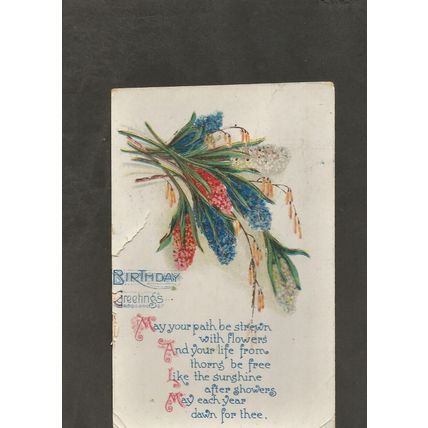 BIRTHDAY
Greetings
May your path be strewn
with flowers
And your life from
thorns be free
Like the sunshine
after showers
May each year
dawn for thee.